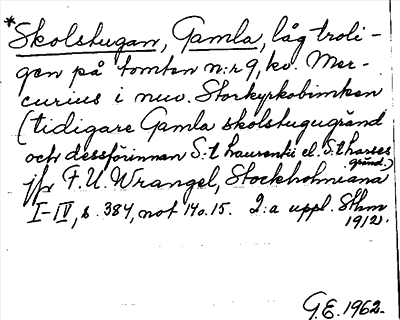 *Skolstugan, Gamla, låg troli-
gen på tomten n:r 9, kv. Mer-
curius i nuv. Storkyrkobrinken
(tidigare Gamla skolstugugränd
och dessförinnan S:t Laurentii el. S:t Larses
gränd.)
jfr F. U. Wrangel, Stockholmiana
I-IV, s. 384, not 14 o. 15. 2:a uppl. Sthm
1912.
G.E. 1962.